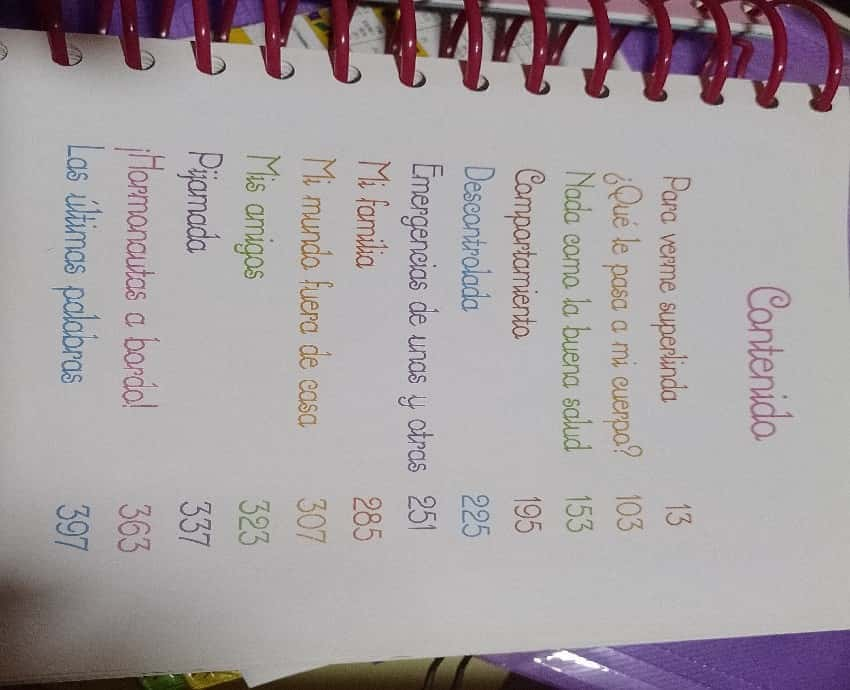 Contenido
Para verme superlinda 13
¿Qué le pasa a mi cuerpo? 103
Nada como la buena salud 153
Comportamiento 195
Descontrolada 225
Emergencias de unas y otras 251
Mi familia 285
Mi mundo fuera de casa 307
Mis amigos 323
Pijamada 337
¡Hormonautas a bordo! 363
Las últimas palabras 397